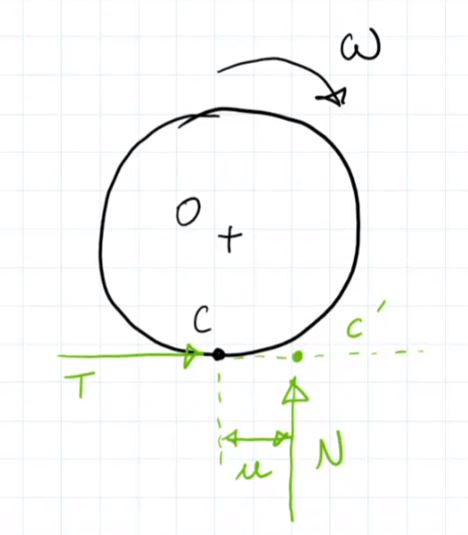 ω
O
C
C'
T
u
N